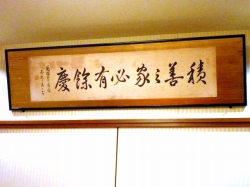 積善之家必有餘慶